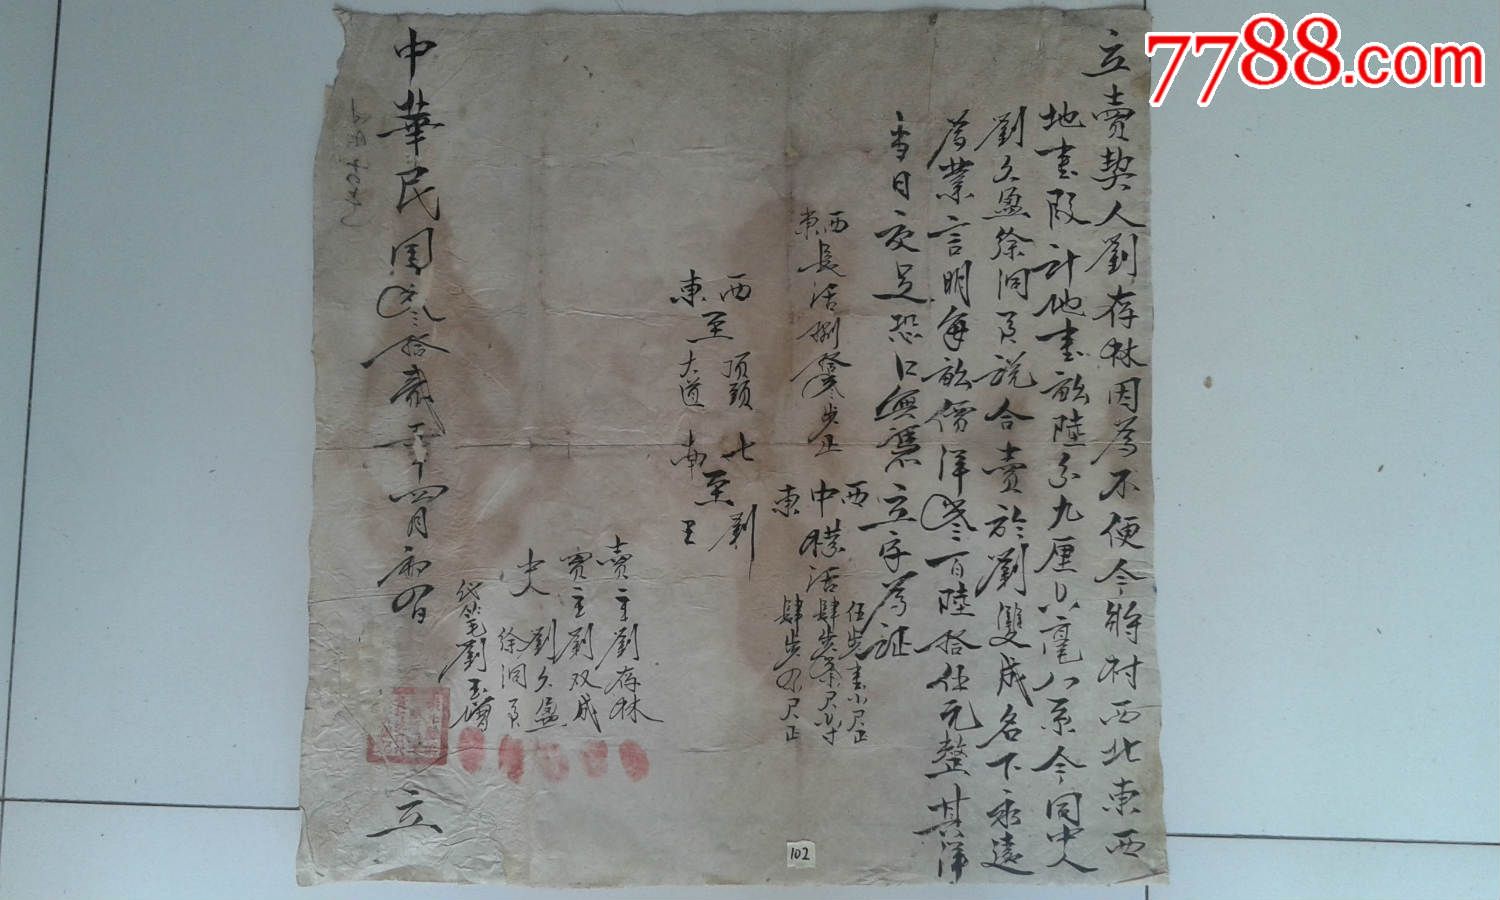 7788.com
立賣契人劉存林因為不便今將村西北東西
地壹段計地壹畝陸分九厘六毫八系今同中人
劉久盈徐洞月說合賣於劉雙成名下永遠
為業言明每畝價洋叁百陸拾伍元整其洋
當日交足恐口無憑立字為証
東西長活捌拾叁步正
西 伍步壹小尺正
中橫活肆步
東 肆步
西至頂頭
東至大道
七至劉
南至王
賣主劉存林
買主劉双成
中人劉久盈
徐洞月
代筆劉玉增
中華民國叁拾貳年四月初四日
立
102